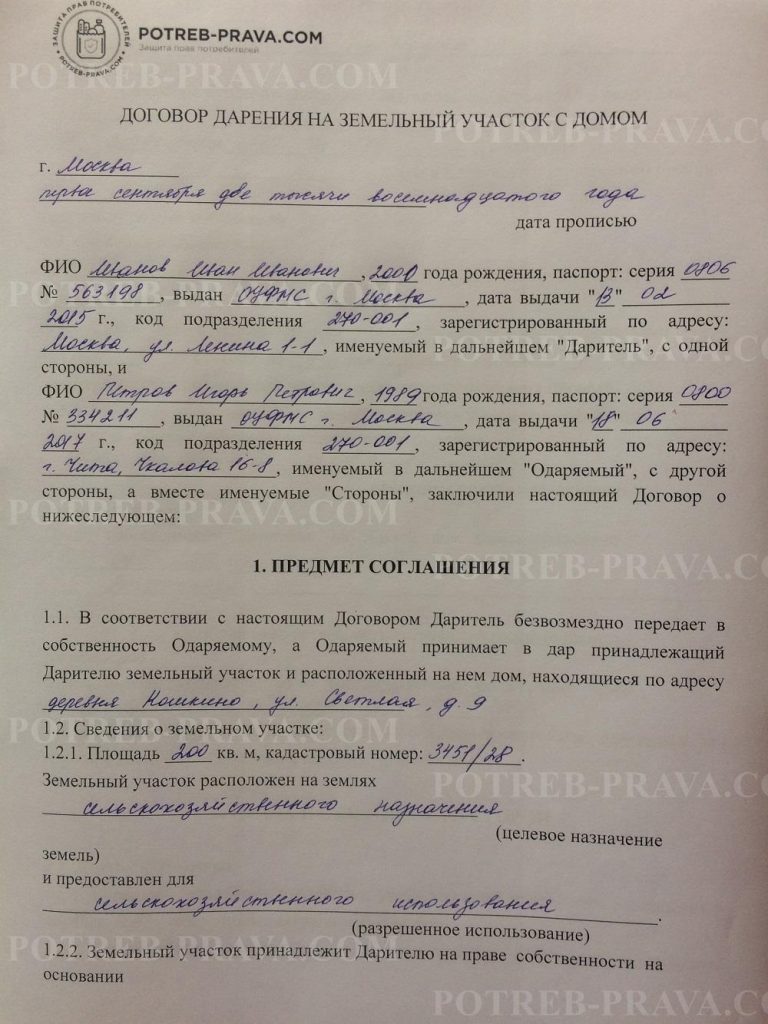 ЗАЩИТА ПРАВ ПОТРЕБИТЕЛЕЙ
POTREB-PRAVA.COM
POTREB-PRAVA.COM
Защита прав потребителей
POTREB-PRAVA.COM
ДОГОВОР ДАРЕНИЯ НА ЗЕМЕЛЬНЫЙ УЧАСТОК С ДОМОМ
POTREB-PRAVA.CO
г. Москва
перво сентября две тысячи восемнадцатого года
дата прописью
ФИО Иванов Иван Иванович, 2000 года рождения, паспорт: серия 0806
№ 563198, выдан ОУФМС г. Москва, дата выдачи "13" 02
2015 г., код подразделения 270-001, зарегистрированный по адресу:
Москва, ул. Ленина 1-1, именуемый в дальнейшем "Даритель", с одной
стороны, и
ФИО Петров Игорь Петрович, 1989 года рождения, паспорт: серия 0800
№ 334211, выдан ОУФМС г. Москва, дата выдачи "18" 06
2017 г., код подразделения 270-001, зарегистрированный по адресу:
г. Чита, Чкалова 16-8, именуемый в дальнейшем "Одаряемый", с другой
стороны, а вместе именуемые "Стороны", заключили настоящий Договор о
нижеследующем:
POTREB-PRAVA.COM
1. ПРЕДМЕТ СОГЛАШЕНИЯ
POTREB-PRAVA.CO
1.1. В соответствии с настоящим Договором Даритель безвозмездно передает в
собственность Одаряемому, а Одаряемый принимает в дар принадлежащий
Дарителю земельный участок и расположенный на нем дом, находящиеся по адресу
деревня Кошкино, ул. Светлая, д. 9
POTREB-PRAVA.COM
1.2. Сведения о земельном участке:
1.2.1. Площадь 200 кв. м, кадастровый номер: 3451/28.
Земельный участок расположен на землях
POTREB-PRAVA.CO
сельскохозяйственного назначения
(целевое назначение
земель)
и предоставлен для
сельскохозяйственного использования.
(разрешенное использование)
POTREB-PRAVA.COM
1.2.2. Земельный участок принадлежит Дарителю на праве собственности на
основании
POTREB-PRAVA.CO